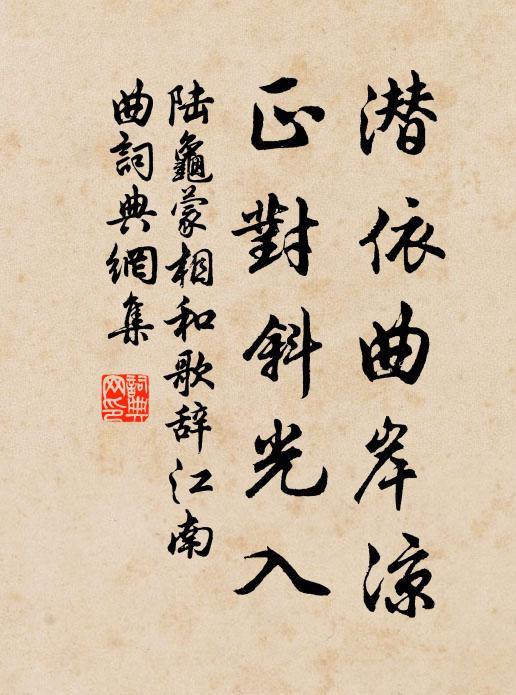 潜依曲岸凉
正對斜光入
陆龜蒙相和歌辞江南
曲詞典網集
詞典
网印